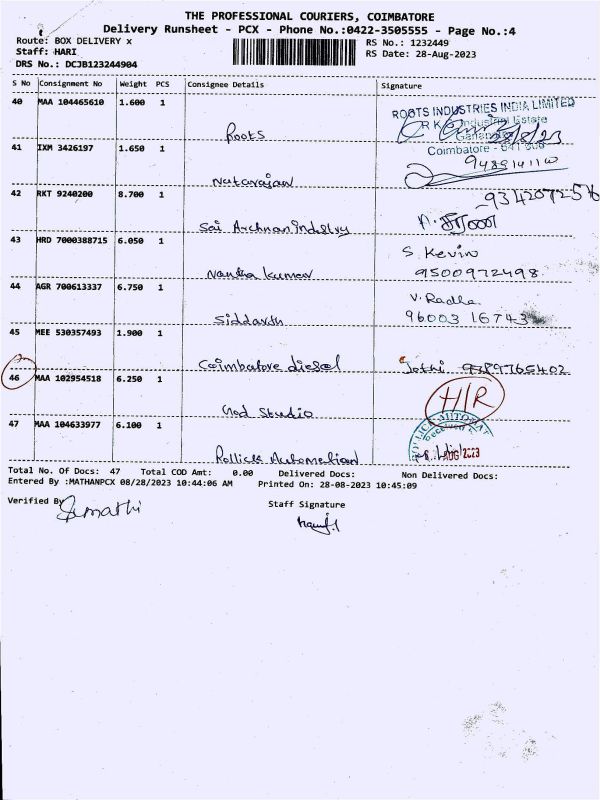 THE PROFESSIONAL COURIERS, COIMBATORE
Delivery Runsheet - PCX - Phone No.:0422-3505555 - Page No.:4
Route: BOX DELIVERY x
RS No.: 1232449
Staff: HARI
RS Date: 28-Aug-2023
DRS No.: DCJB123244904
S No Consignment No Weight PCS Consignee Details Signature
40 MAA 104465610 1.600 1
ROOTS INDUSTRIES INDIA LIMITED
R K Industrial Estate
Roots
Coimbatore - 641 006
41 IXM 3426197 1.650 1
Natarajan
42 RKT 9240200 8.700 1
Sai Archnan Industry
43 HRD 7000388715 6.050 1
S. Kevin
Nantha kumar 9500972498
44 AGR 700613337 6.750 1
V. Radha
Siddarth 96003 16743
45 MEE 530357493 1.900 1
Coimbatore diesel Jothi 9789765402
46 MAA 102954518 6.250 1
H/R
God Studio
47 MAA 104633977 6.100 1
AUG 2023
Rollick Automation
Total No. Of Docs: 47 Total COD Amt: 0.00 Delivered Docs: Non Delivered Docs:
Entered By :MATHANPCX 08/28/2023 10:44:06 AM Printed On: 28-08-2023 10:45:09
Verified By
Staff Signature